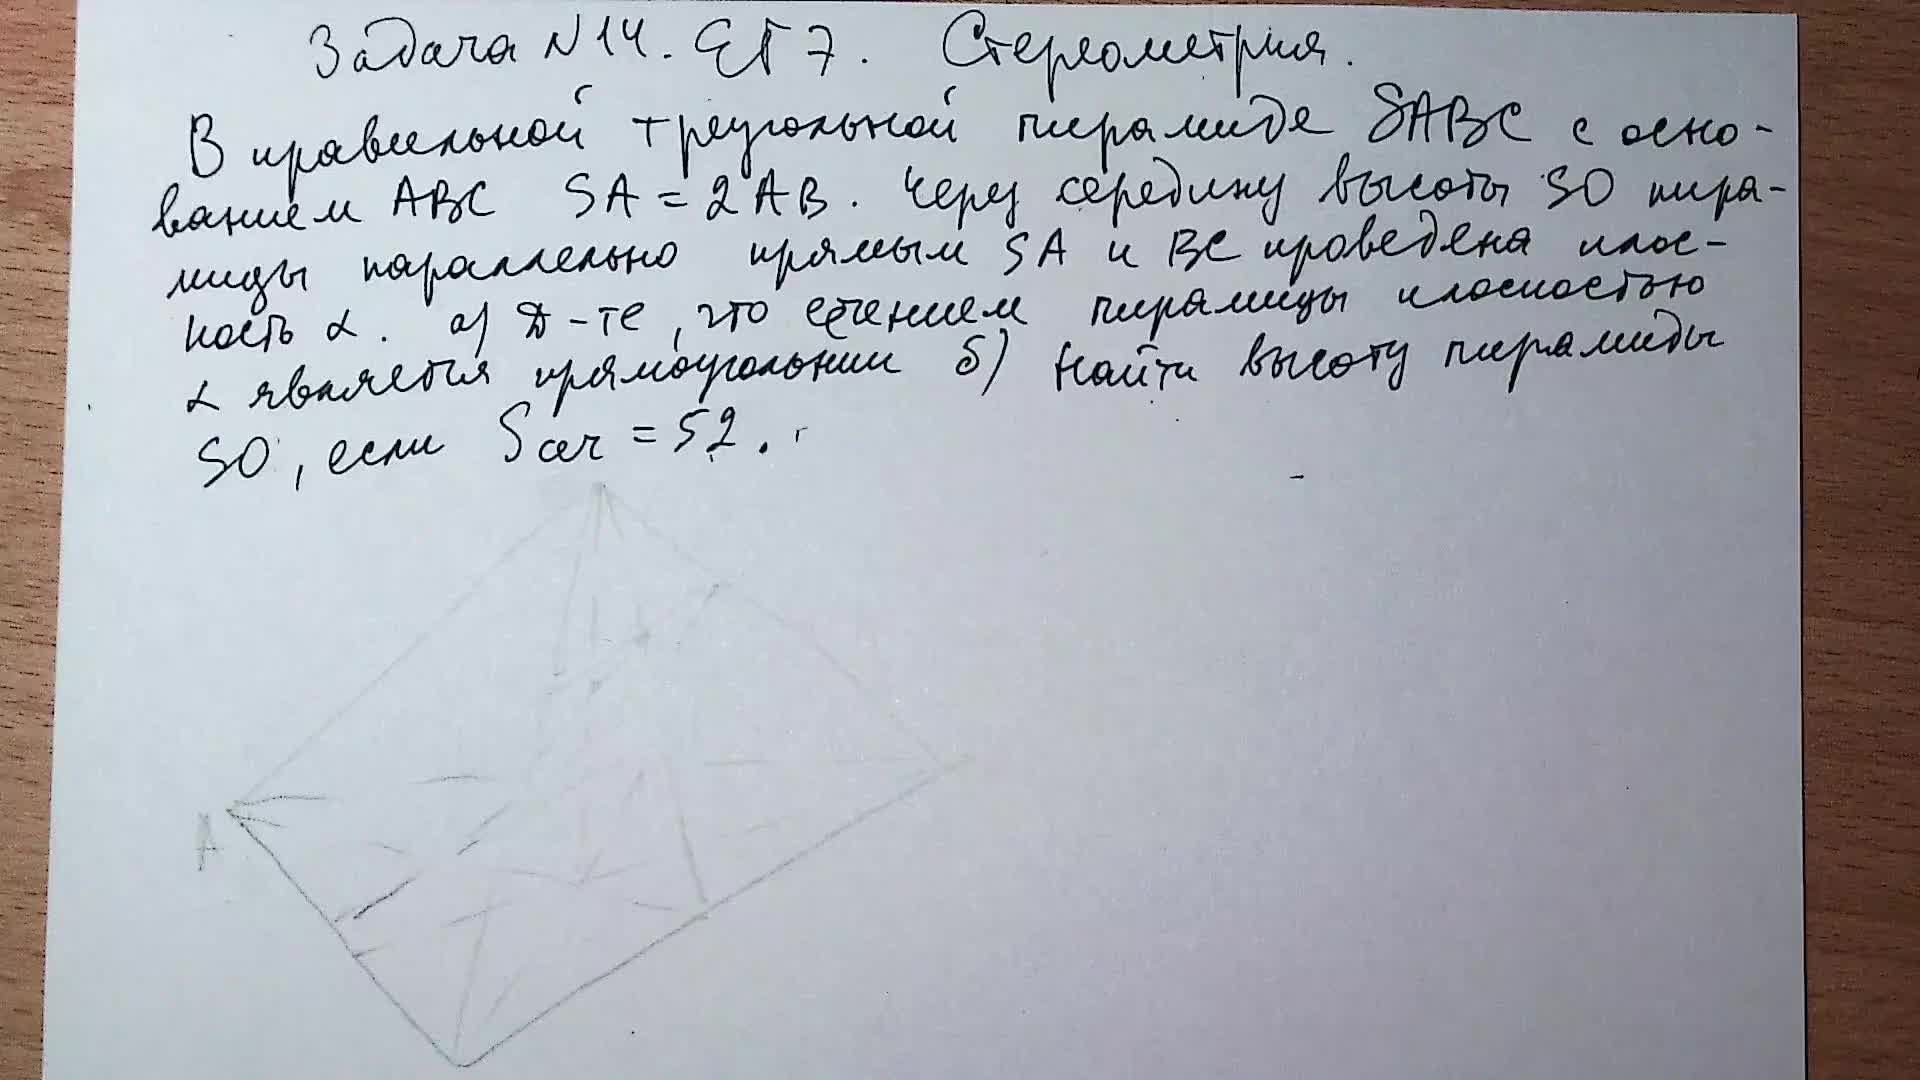 Задача N14. ЕГЭ. Стереометрия.
В правильной треугольной пирамиде SABC с осно-
ванием ABC SA = 2AB. Через середину высоты SO пира-
миды параллельно прямым SA и BC проведена плос-
кость α. а) Д-те, что сечением пирамиды плоскостью
α является прямоугольник б) Найти высоту пирамиды
SO, если Sсеч = 52.
A